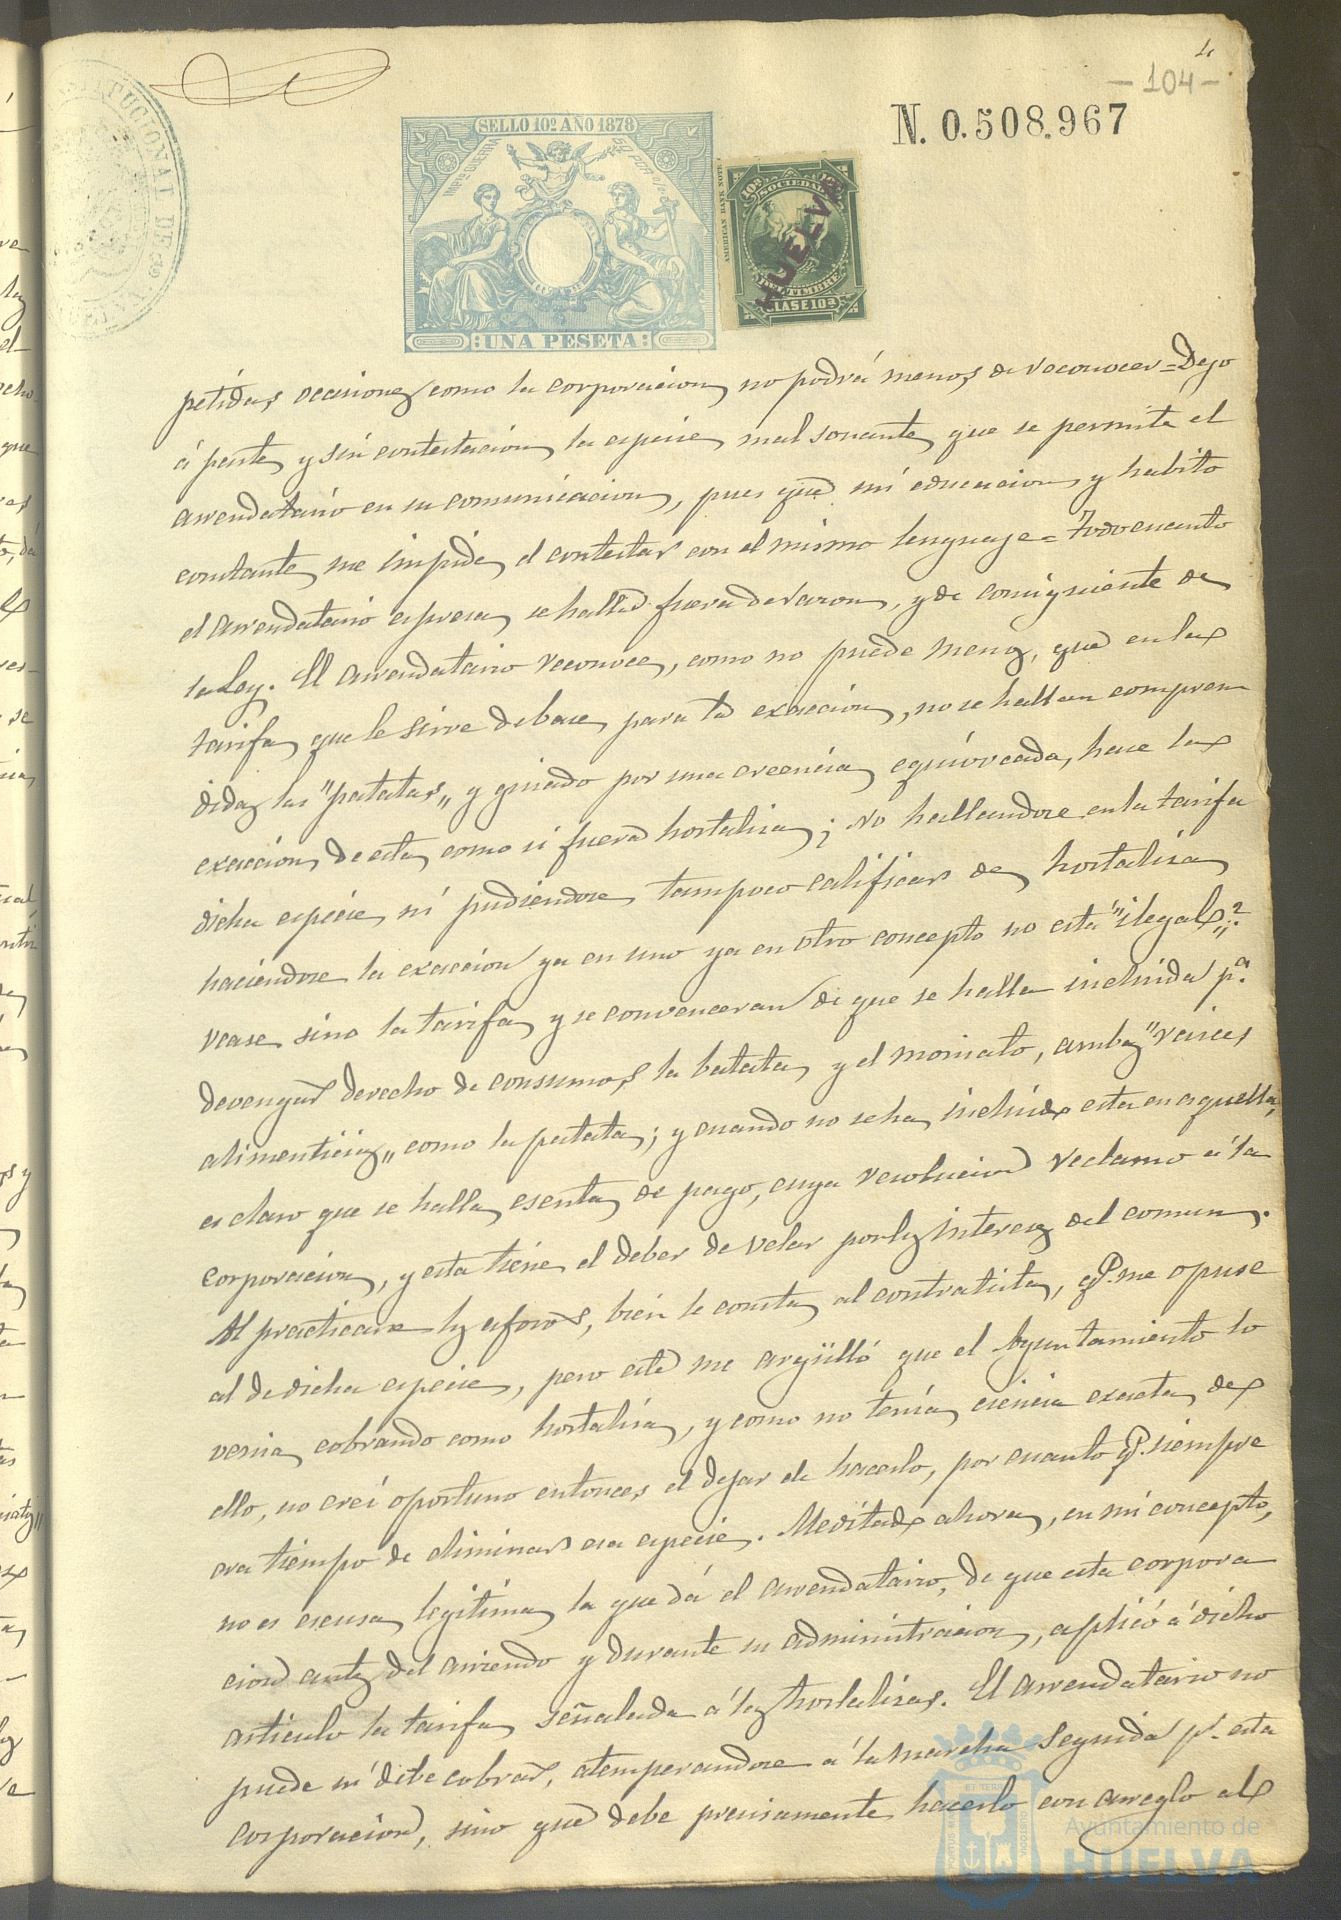 4
-104-
N. 0.508.967
SELLO 10º AÑO 1878
IMPTO DE GUERRA 50 POR 0/0
UNA PESETA
AMERICAN BANK NOTE
10ª
SOCIEDAD
DEL TIMBRE
CLASE 10ª
HUELVA
petidas ocasiones como la corporacion no podrá menos de reconocer = Dejo
á parte y sin contestacion la especie mal sonante que se permite el
arrendatario en su comunicacion, pues que mi educacion y habito
constante me impide el contestar con el mismo lenguaje = Todo cuanto
el arrendatario espresa se halla fuera de razon, y de consiguiente de
la Ley. El arrendatario reconoce, como no puede menos, que en la
tarifa que le sirve de base para la exaccion, no se hallan compren
didas las "patatas" y guiado por una creencia equivocada, hace la
exaccion de esta como si fuera hortaliza; No hallandose en la tarifa
dicha especie ni pudiendose tampoco calificar de hortaliza
haciendose la exaccion ya en uno ya en otro concepto no está "ilegal"?
vease sino la tarifa y se convenceran de que se halla incluida pª
devengar derecho de consumos la batata y el moniato, ambas "raices
alimenticias" como la patata; y cuando no se ha incluido esta en aquella,
es claro que se halla esenta de pago, cuya resolucion reclamo á la
corporacion, y esta tiene el deber de velar por los intereses del comun.
Al practicarse los aforos, bien le consta al contratista, qe. me opuse
al de dicha especie, pero este me argülló que el Ayuntamiento lo
venia cobrando como hortaliza, y como no tenía ciencia exacta de
ello, no creí oportuno entonces el dejar de hacerlo, por cuanto qe. siempre
era tiempo de eliminar esa especie. Meditado ahora, en mi concepto,
no es escusa legitima la que dá el arrendatario, de que esta corpora
cion antes del arriendo y durante su administracion, aplicó á dicho
articulo la tarifa señalada á las hortalizas. El arrendatario no
puede ni debe cobrar, atemperandose á la marcha seguida pr. esta
corporacion, sino que debe precisamente hacerlo con arreglo al
Ayuntamiento de
HUELVA